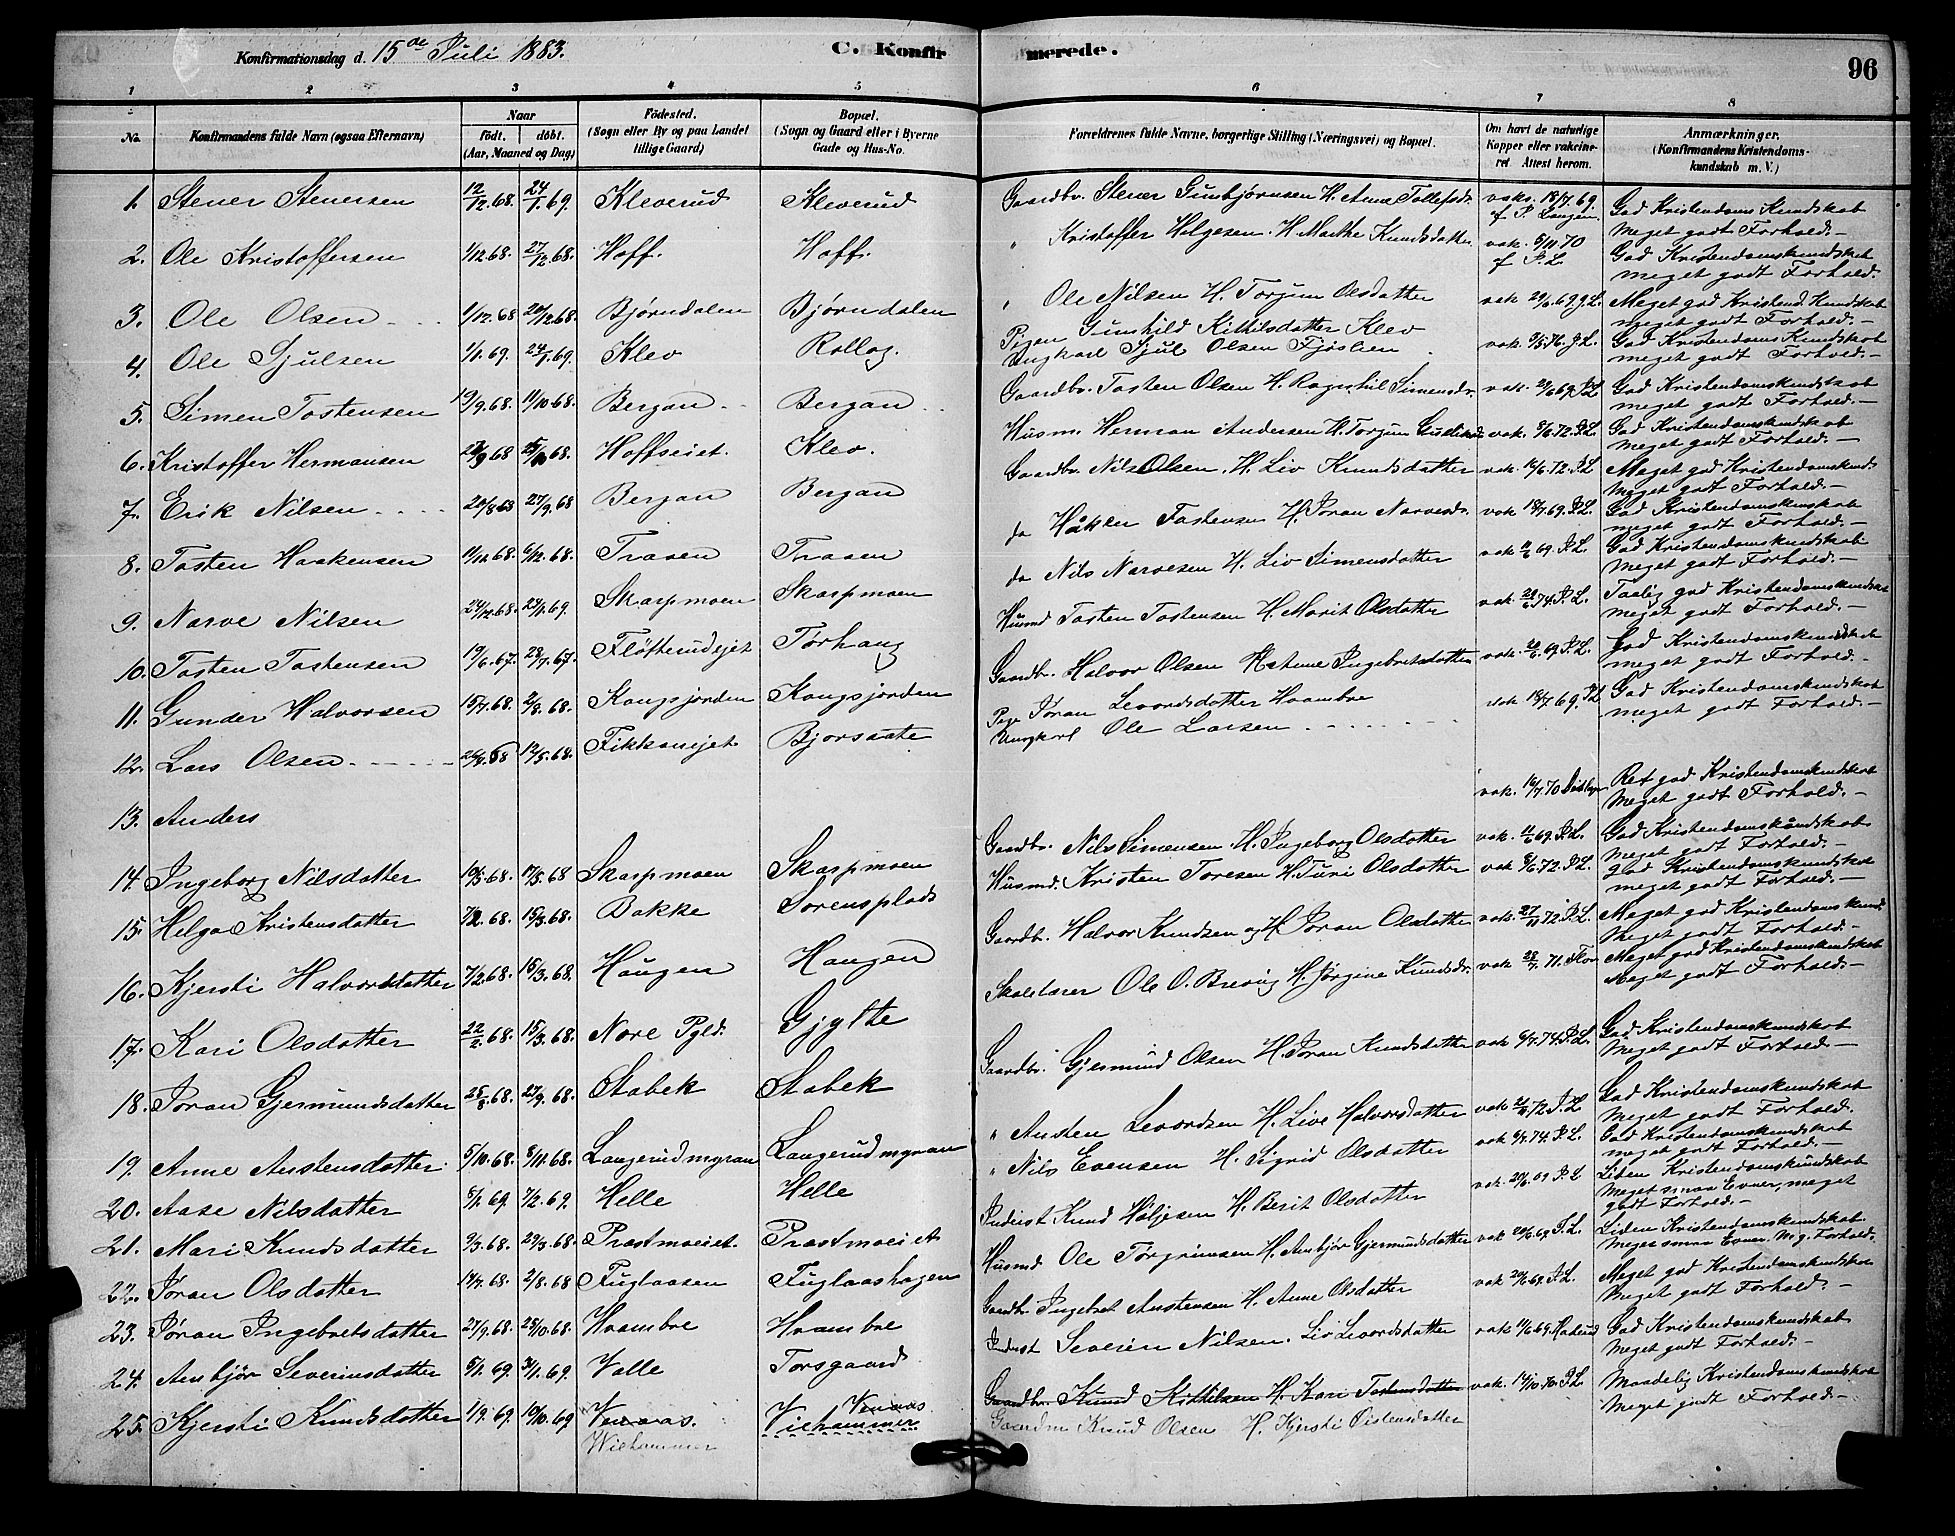 Konfirmationsdag d. 15de Juli 1883.
C. Konfirmerede.
96
1 2 3 4 5 6 7 8
No.
Konfirmandens fulde Navn (ogsaa Efternavn)
Naar
født. døbt.
(Aar, Maaned og Dag)
Fødested.
(Sogn eller By og paa Landet
tillige Gaard)
Bopæl.
(Sogn og Gaard eller i Byerne
Gade og Hus-No.
Forældrenes fulde Navne, borgerlige Stilling (Næringsvei) og Bopæl.
Om havt de naturlige
Kopper eller vakcine-
ret Attest herom.
Anmærkninger.
(Konfirmandens Kristendoms-
kundskab m. V.)
1. Stener Stenersen 12/12.68. 24/1.69. Kleverud Kleverud Gaardbr. Stener Gunbjørnsen H. Anne Tollefsdr. vaks. 18/7.69. f P. Langen God Kristendoms Kundskab Meget godt Forhold.-
2. Ole Kristoffersen 1/12 68. 27/12.68. Hoff. Hoff. " Kristoffer Helgesen. H. Marthe Knudsdatter vak. 5/11.70 f P.L. God Kristendomskundskab meget godt Forhold.
3. Ole Olsen 1/12.68 20/12.68. Bjørndalen Bjørndalen " Ole Nilsen H. Torjun Olsdatter vak 29/6.69. Meget god Kristend. Kundskab meget godt Forhold.-
4. Ole Sjulsen 1/1.69. 24/1.69. Klev Rollag. Pigen Gunhild Kittilsdatter Klev Ungkarl Sjul Olsen Fjøslien vak. God Kristendoms Kundskab meget godt Forhold.-
5. Simen Tostensen 19/9.68. 11/10 68. Bergan Bergan Gaardbr. Tosten Olsen H. Ragnhil Simensdr. vak. God Kristendomskundskab meget godt Forhold.-
6. Kristoffer Hermansen 68. 68. Hoffseiet. Klev. Husm. Herman Andersen H. Torjun vak. 5/6.72. P.L. God Kristendomskundskab meget godt Forhold.-
7. Erik Nilsen 20/8 68 27/9.68 Bergan Bergan Gaardbr Nils Olsen. H. Liv Knudsdatter vak 12/6.72. P.L Meget god Kristendomskunds Meget godt Forhold.-
8. Tosten Haakensen 11/12 68. 6/12.68. Traaen Traaen do Håken Tostensen H. Jøran Narvesdr. vak 18/7.69. P.L. God Kristendomskundskab meget godt Forhold.-
9. Narve Nilsen 24/12.68. 23/1.69. Skarpmoen Skarpmoen do Nils Narvesen H. Liv Simensdatter vak 69. P.L. God Kristendomskundskab meget godt Forhold.-
10. Tosten Tostensen 19/6.67. 28/7.67. Fløtterudejet Tørhaug Husmd Tosten Tostensen H. Marit Olsdatter vak. 74. P.L. Taalig god Kristendomskundska meget godt Forhold.-
11. Gunder Halvorsen 15/7.68. 2/8.68. Kongsjorden Kongsjorden Gaardbr. Halvor Olsen H. Anne Ingebretsdatter vak. 69. P.L. God Kristendomskundskab meget godt Forhold.-
12. Lars Olsen 68 12/5.68. Fikkaneiet Bjørsaate Pige Jøran Levordsdatter Hvambre Ungkarl Ole Larsen vak 18/7 69. P.L God Kristendomskundskab meget godt Forhold.-
13. Anders vak. 16/7.70 Ret god Kristendomskundskab Meget godt Forhold.-
14. Ingeborg Nilsdatter 68. 68 Skarpmoen Skarpmoen Gaardbr. Nils Simensen H. Ingeborg Olsdatter vak. 69. P.L. God Kristendomskundskab meget godt Forhold.-
15. Helga Kristensdatter 68. 15/3.68. Bakke Sorensplads Husmd. Kristen Toresen H. Turi Olsdatter vak 72. P.L. god Kristendomskundskab meget godt Forhold.-
16. Kjersti Halvorsdatter 7/2.68. 15/3.68. Haugen Haugen Gaardbr. Halvor Knudsen og H. Jøran Olsdatter vak. 27/11 72. P.L. Meget god Kristendomskund. Meget godt Forhold.-
17. Kari Olsdatter 22/2.68. 15/3.68. Nore Pgld. Gjylte Skolelærer Ole O. Brevig H. Jørgine Knudsdr. vak 71. Meget god Kristendomskundskab Meget godt Forhold.-
18. Jøran Gjermundsdatter 25/8.68. 27/9.68. Stabek Stabek Gaardbr. Gjermund Olsen H. Jøran Knudsdatter vak 74. P.L. God Kristendomskundskab Meget godt Forhold.-
19 Anne Austensdatter. 5/10.68. 8/11.68. Langerudmyran Langerudmyran " Austen Levordsen H. Live Halvorsdatter vak 72 P.L God Kristendomskundskab Meget godt Forhold.
20. Aase Nilsdatter 69. 7/2.69. Helle Helle " Nils Evensen H. Sigrid Olsdatter vak 74. P.L. God Kristendomskundskab meget godt Forhold.-
21. Mari Knudsdatter 9/3.68. 29/3.68. Præstmoeiet. Præstmoeiet Inderst Knud Håljesen H. Berit Olsdatter vak. P.L Liden Kristendomskundskab Meget smaa Evner, meget godt Forhold.-
22. Jøran Olsdatter 68. 2/8.68 Fuglaasen Fuglaashagen Husmd Ole Torgrimsen H. Anbjør Gjermundsdatter vak P.L. Liden Kristendomskundskab. Meget smaa Evner. M. g. Forhold.
23. Jøran Ingebretsdatter 27/9.68. 25/10.68. Hvambre Hvambre Gaardbr Ingebret Austensen H. Anne Olsdatter vak 20/6.69. P.L. Meget god Kristendomskundska Meget godt Forhold.-
24. Anbjør Severinsdatter 5/1.69. 31/1.69. Valle Torsgaard Inderst Severin Nilsen. Liv Levordsdatter vak 69. God Kristendomskundskab Meget godt Forhold.-
25. Kjersti Knudsdatter 1/9.69. 10/10.69 Venaas. Wiehammer Venaas Viehammer Gaardbr. Knud Kittilsen H. Kari Tostensdatter vak. 14/10.70. P.L Maadelig Kristendomskundskab Meget godt Forhold.-
Gaardm Knud Olsen H. Kjersti Oistensdatter